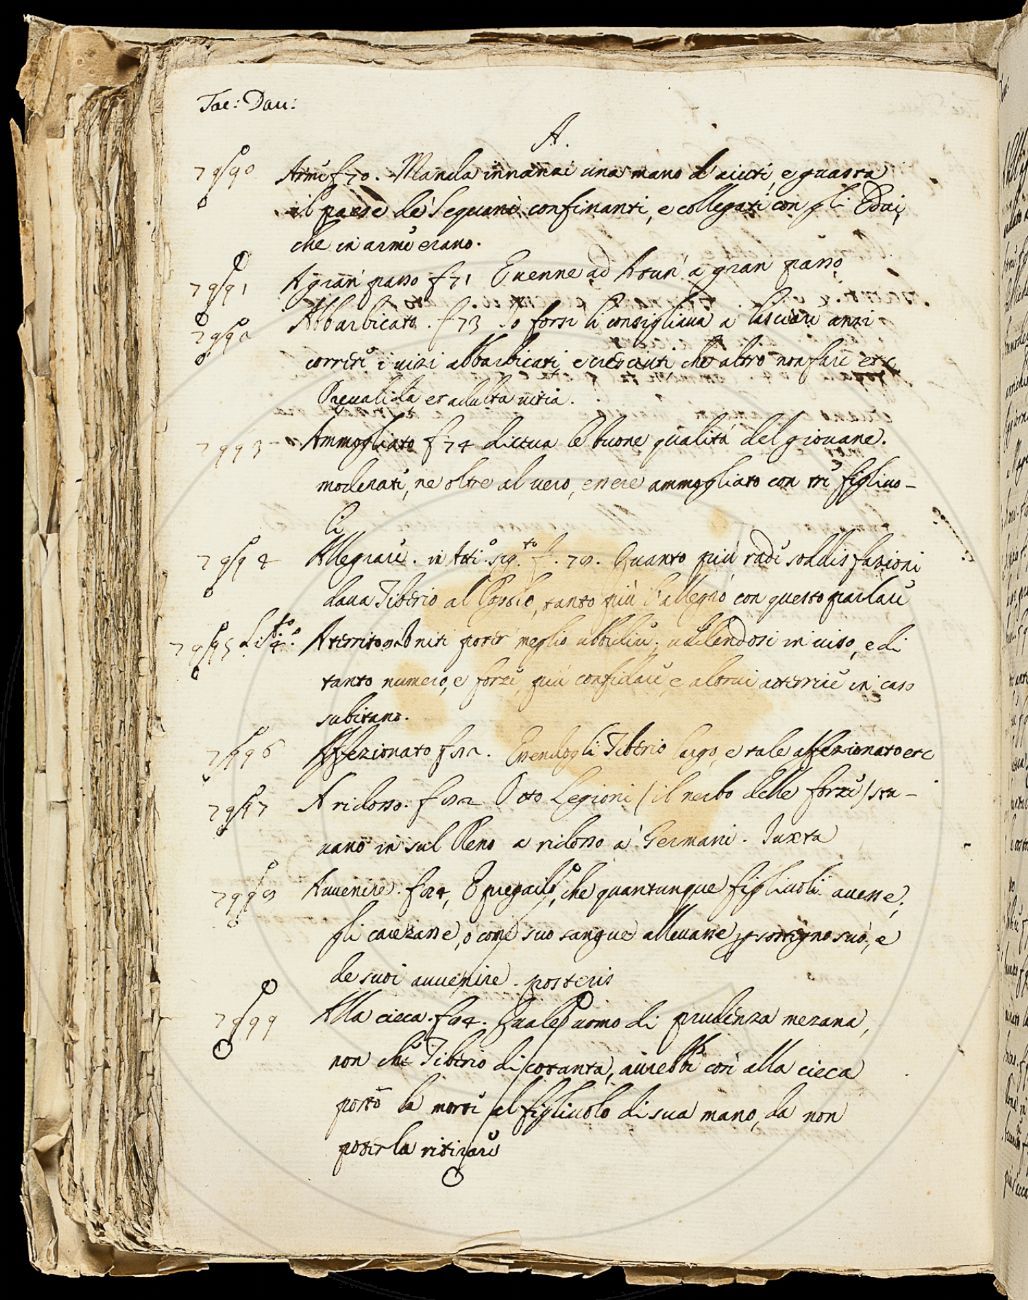 Tac: Dav:
A.
7990 Armi f 70. Manda innanzi una mano d'aiuti e guasta
il paese de Sequani confinanti, e collegati con gli Edui,
che in armi erano.
7991 A gran passo f 71 E venne ad Atun' a gran passo,
7992 Abbarbicato. f 73 Io forse li consigliava a lasciare anzi
correre i vizi abbarbicati, e cresciuti che altro non fare etc
Praevalida et adulta vitia.
7993 - Ammogliato f 74 diceva le buone qualità del giovane.
moderati, ne oltre al vero, essere ammogliato con tre figliuo-
li
7994 Allegrare. in Atti.º sig.to f. 79. Quanto più rade soddisfazioni
dava Tiberio al Popolo, tanto più l'allegrò con questo parlare
7995 Atterrito
meglio ubbidire, vedendosi in viso, e di
tanto numero, e forze più confidare, e altrui atterrire in caso
subitano.
7996 Affezionato f 82. Essendogli Tiberio largo, e tale affezionato etc
7997 A ridosso. f 82 Otto Legioni (il nerbo delle forze) sta-
vano in sul Reno a ridosso a' Germani. Iuxta
7998 Avvenire. f 84, E pregaili, che quantunque figliuoli avesse,
gli carezzasse, o come suo sangue allevasse, per sostegno suo, e
de suoi avvenire. posteris
7999 Alla cieca. f 84. Quale uomo di prudenza mezana,
non che Tiberio di cotanta, avrebbe così alla cieca
porto la morte al figliuolo di sua mano, da non
poterla ritirare